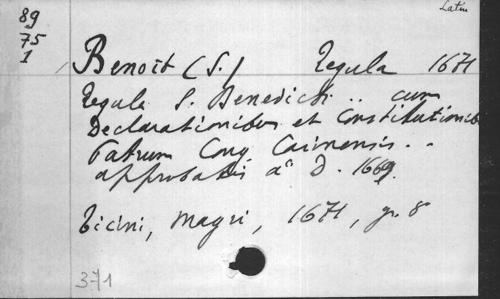 Latin
89
75
1
Benoit (S.) Regula 1671
Regula S. Benedicti .. cum
Declarationibus et Constitutionib
Patrum Cong Casinensis ..
approbatis a° D. 1669.
Ticini, Magri, 1671, gr. 8
371